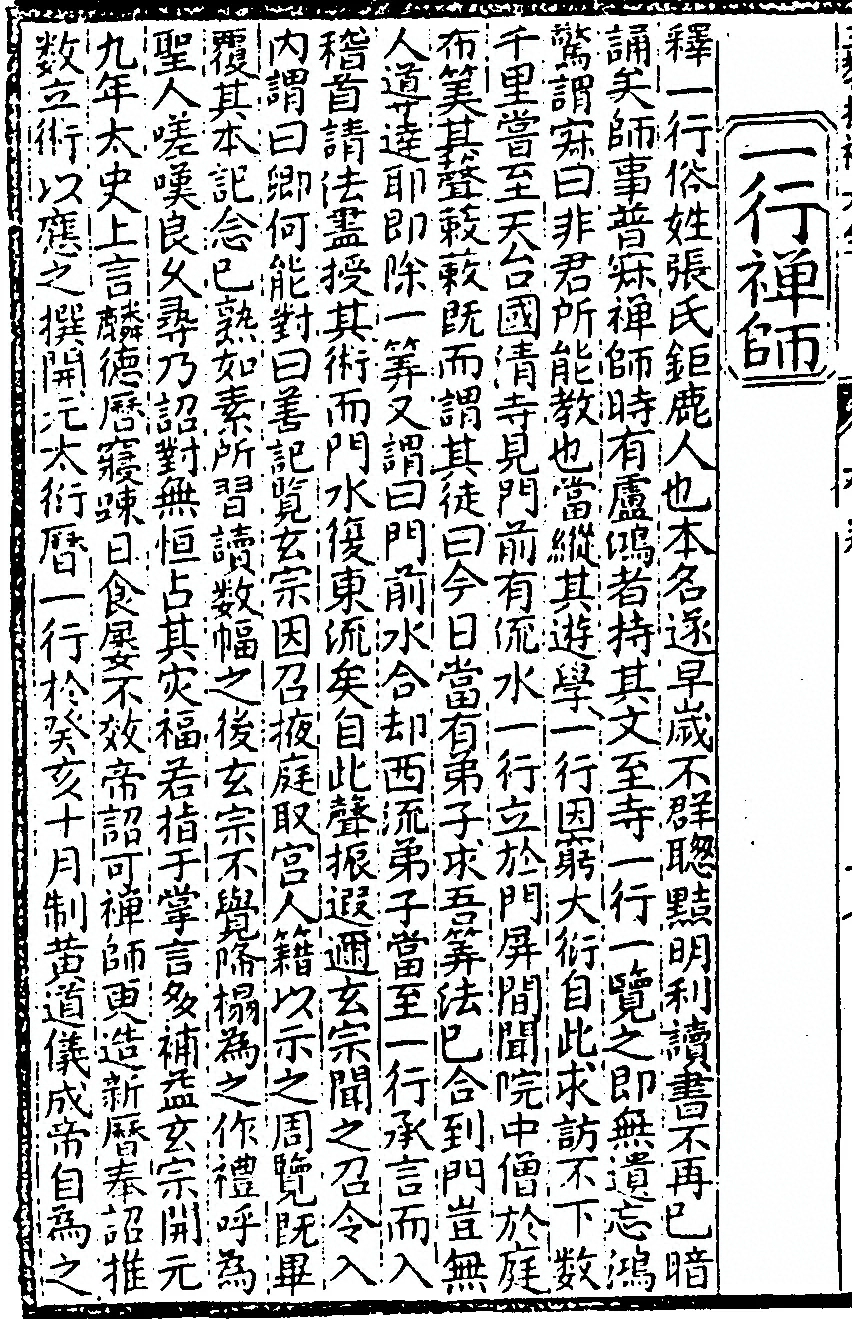 一行禅師
釋一行俗姓張氏鉅鹿人也本名遂早歲不群聦黠明利讀書不再已暗
誦矣師事普寂禅師時有盧鴻者持其文至寺一行一覽之即無遺忘鴻
驚謂寂曰非君所能教也當縱其遊學一行因窮大衍自此求訪不下数
千里嘗至天台國清寺見門前有流水一行立於門屏間聞院中僧於庭
布筭其聲蔌蔌既而謂其徒曰今日當有弟子求吾筭法已合到門豈無
人道達耶即除一筭又謂曰門前水合却西流弟子當至一行承言而入
稽首請法盡授其術而門水復東流矣自此聲振遐邇玄宗聞之召令入
内謂曰卿何能對曰善記覽玄宗因召掖庭取宫人籍以示之周覽既畢
覆其本記念已熟如素所習讀数幅之後玄宗不覺降榻為之作禮呼為
聖人嗟嘆良久尋乃詔對無恒占其灾福若指于掌言多補益玄宗開元
九年太史上言麟德曆寖踈日食屡不效帝詔可禅師更造新曆奉詔推
数立術以應之撰開元太衍曆一行於癸亥十月制黄道儀成帝自為之